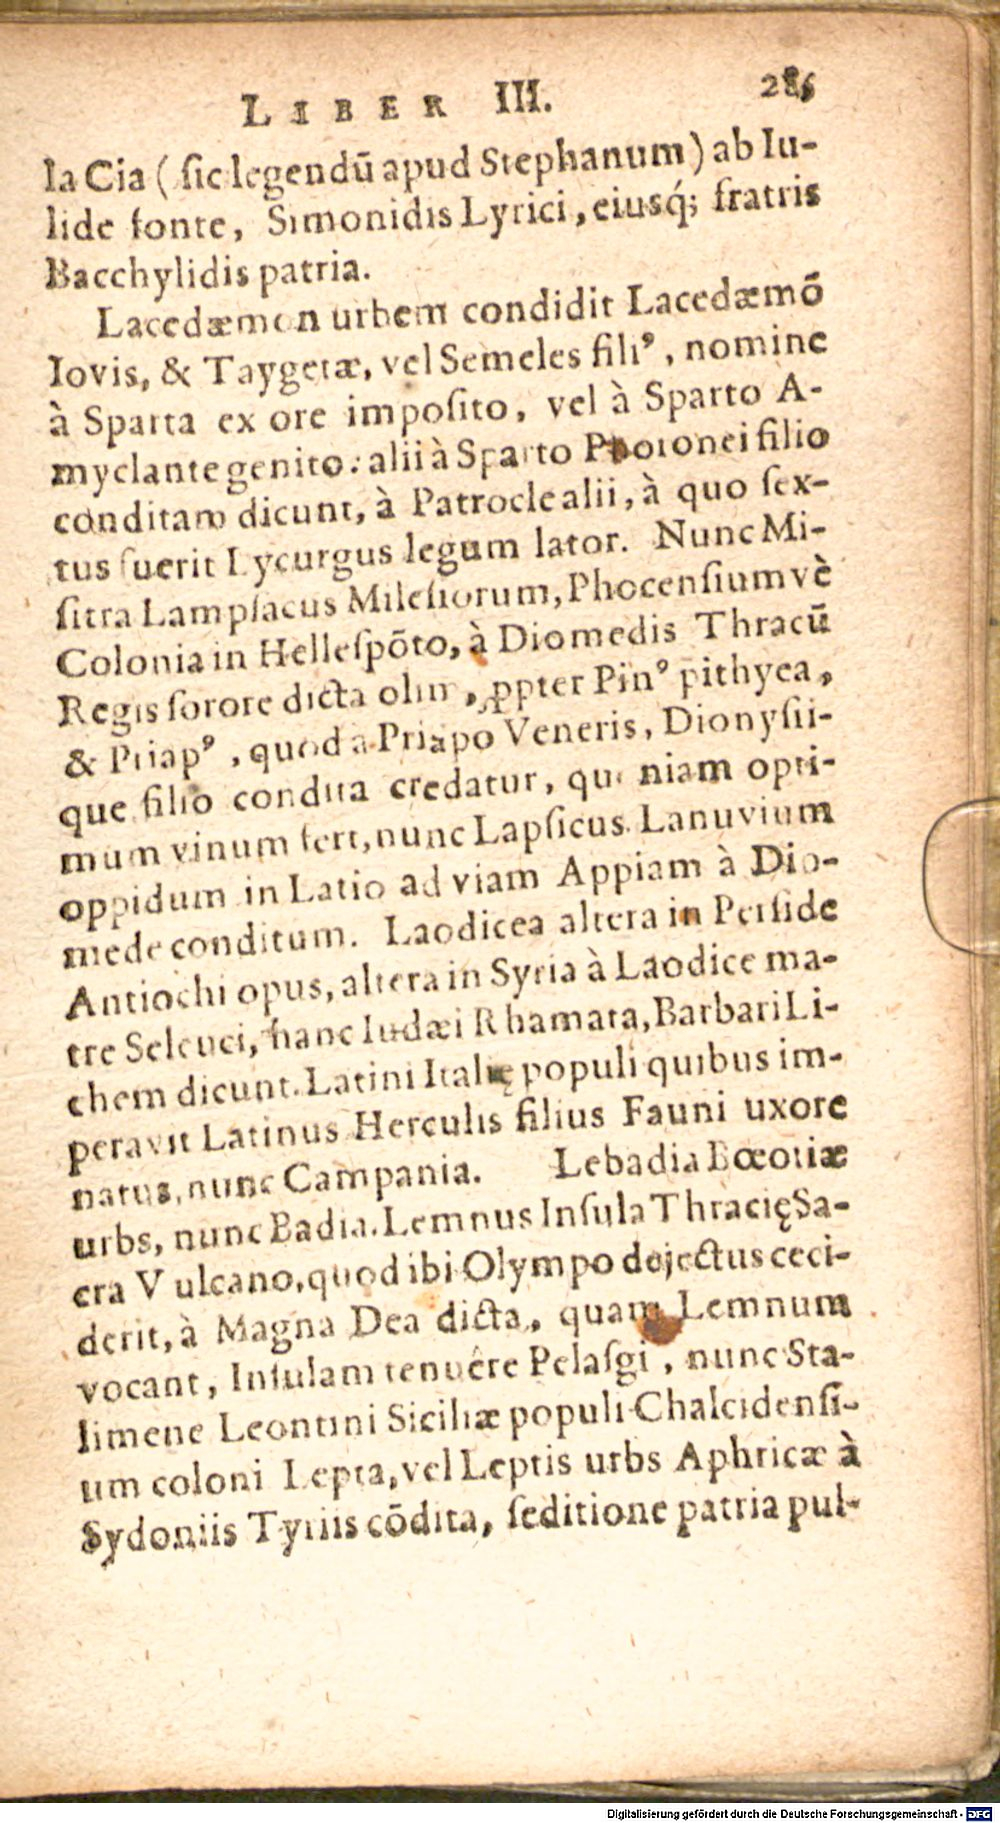 LIBER III. 285
la Cia ( ſic legendū apud Stephanum) ab Iu-
lide fonte, Simonidis Lyrici, eiusq́; fratris
Bacchylidis patria.
Lacedæmon urbem condidit Lacedæmō
Iovis, & Taygetæ, vel Semeles filiꝰ, nomine
à Sparta ex ore impoſito, vel à Sparto A-
myclante genito: alii à Sparto Phoronei filio
conditam dicunt, à Patrocle alii, à quo ſex-
tus fuerit Lycurgus legum lator. Nunc Mi-
ſitra Lampſacus Mileſiorum, Phocenſium vè
Colonia in Helleſpōto, à Diomedis Thracū
Regis ſorore dicta olim, ꝓpter Pinꝰ pithyea,
& Priapꝰ, quod a Priapo Veneris, Dionyſii-
que filio condita credatur, quoniam opti-
mum vinum fert, nunc Lapſicus. Lanuvium
oppidum in Latio ad viam Appiam à Dio-
mede conditum. Laodicea altera in Perſide
Antiochi opus, altera in Syria à Laodice ma-
tre Seleuci, hanc Iudæi Rhamata, Barbari Li-
chem dicunt. Latini Italię populi quibus im-
peravit Latinus Herculis filius Fauni uxore
natus, nunc Campania. Lebadia Bœotiæ
urbs, nunc Badia. Lemnus Inſula Thracię Sa-
cra Vulcano, quod ibi Olympo dejectus ceci-
derit, à Magna Dea dicta, quam Lemnum
vocant, Inſulam tenuêre Pelaſgi, nunc Sta-
limene Leontini Siciliæ populi Chalcidenſi-
um coloni Lepta, vel Leptis urbs Aphricæ à
Sydoniis Tyriis cōdita, ſeditione patria pul-
Digitalisierung gefördert durch die Deutsche Forschungsgemeinschaft - DFG